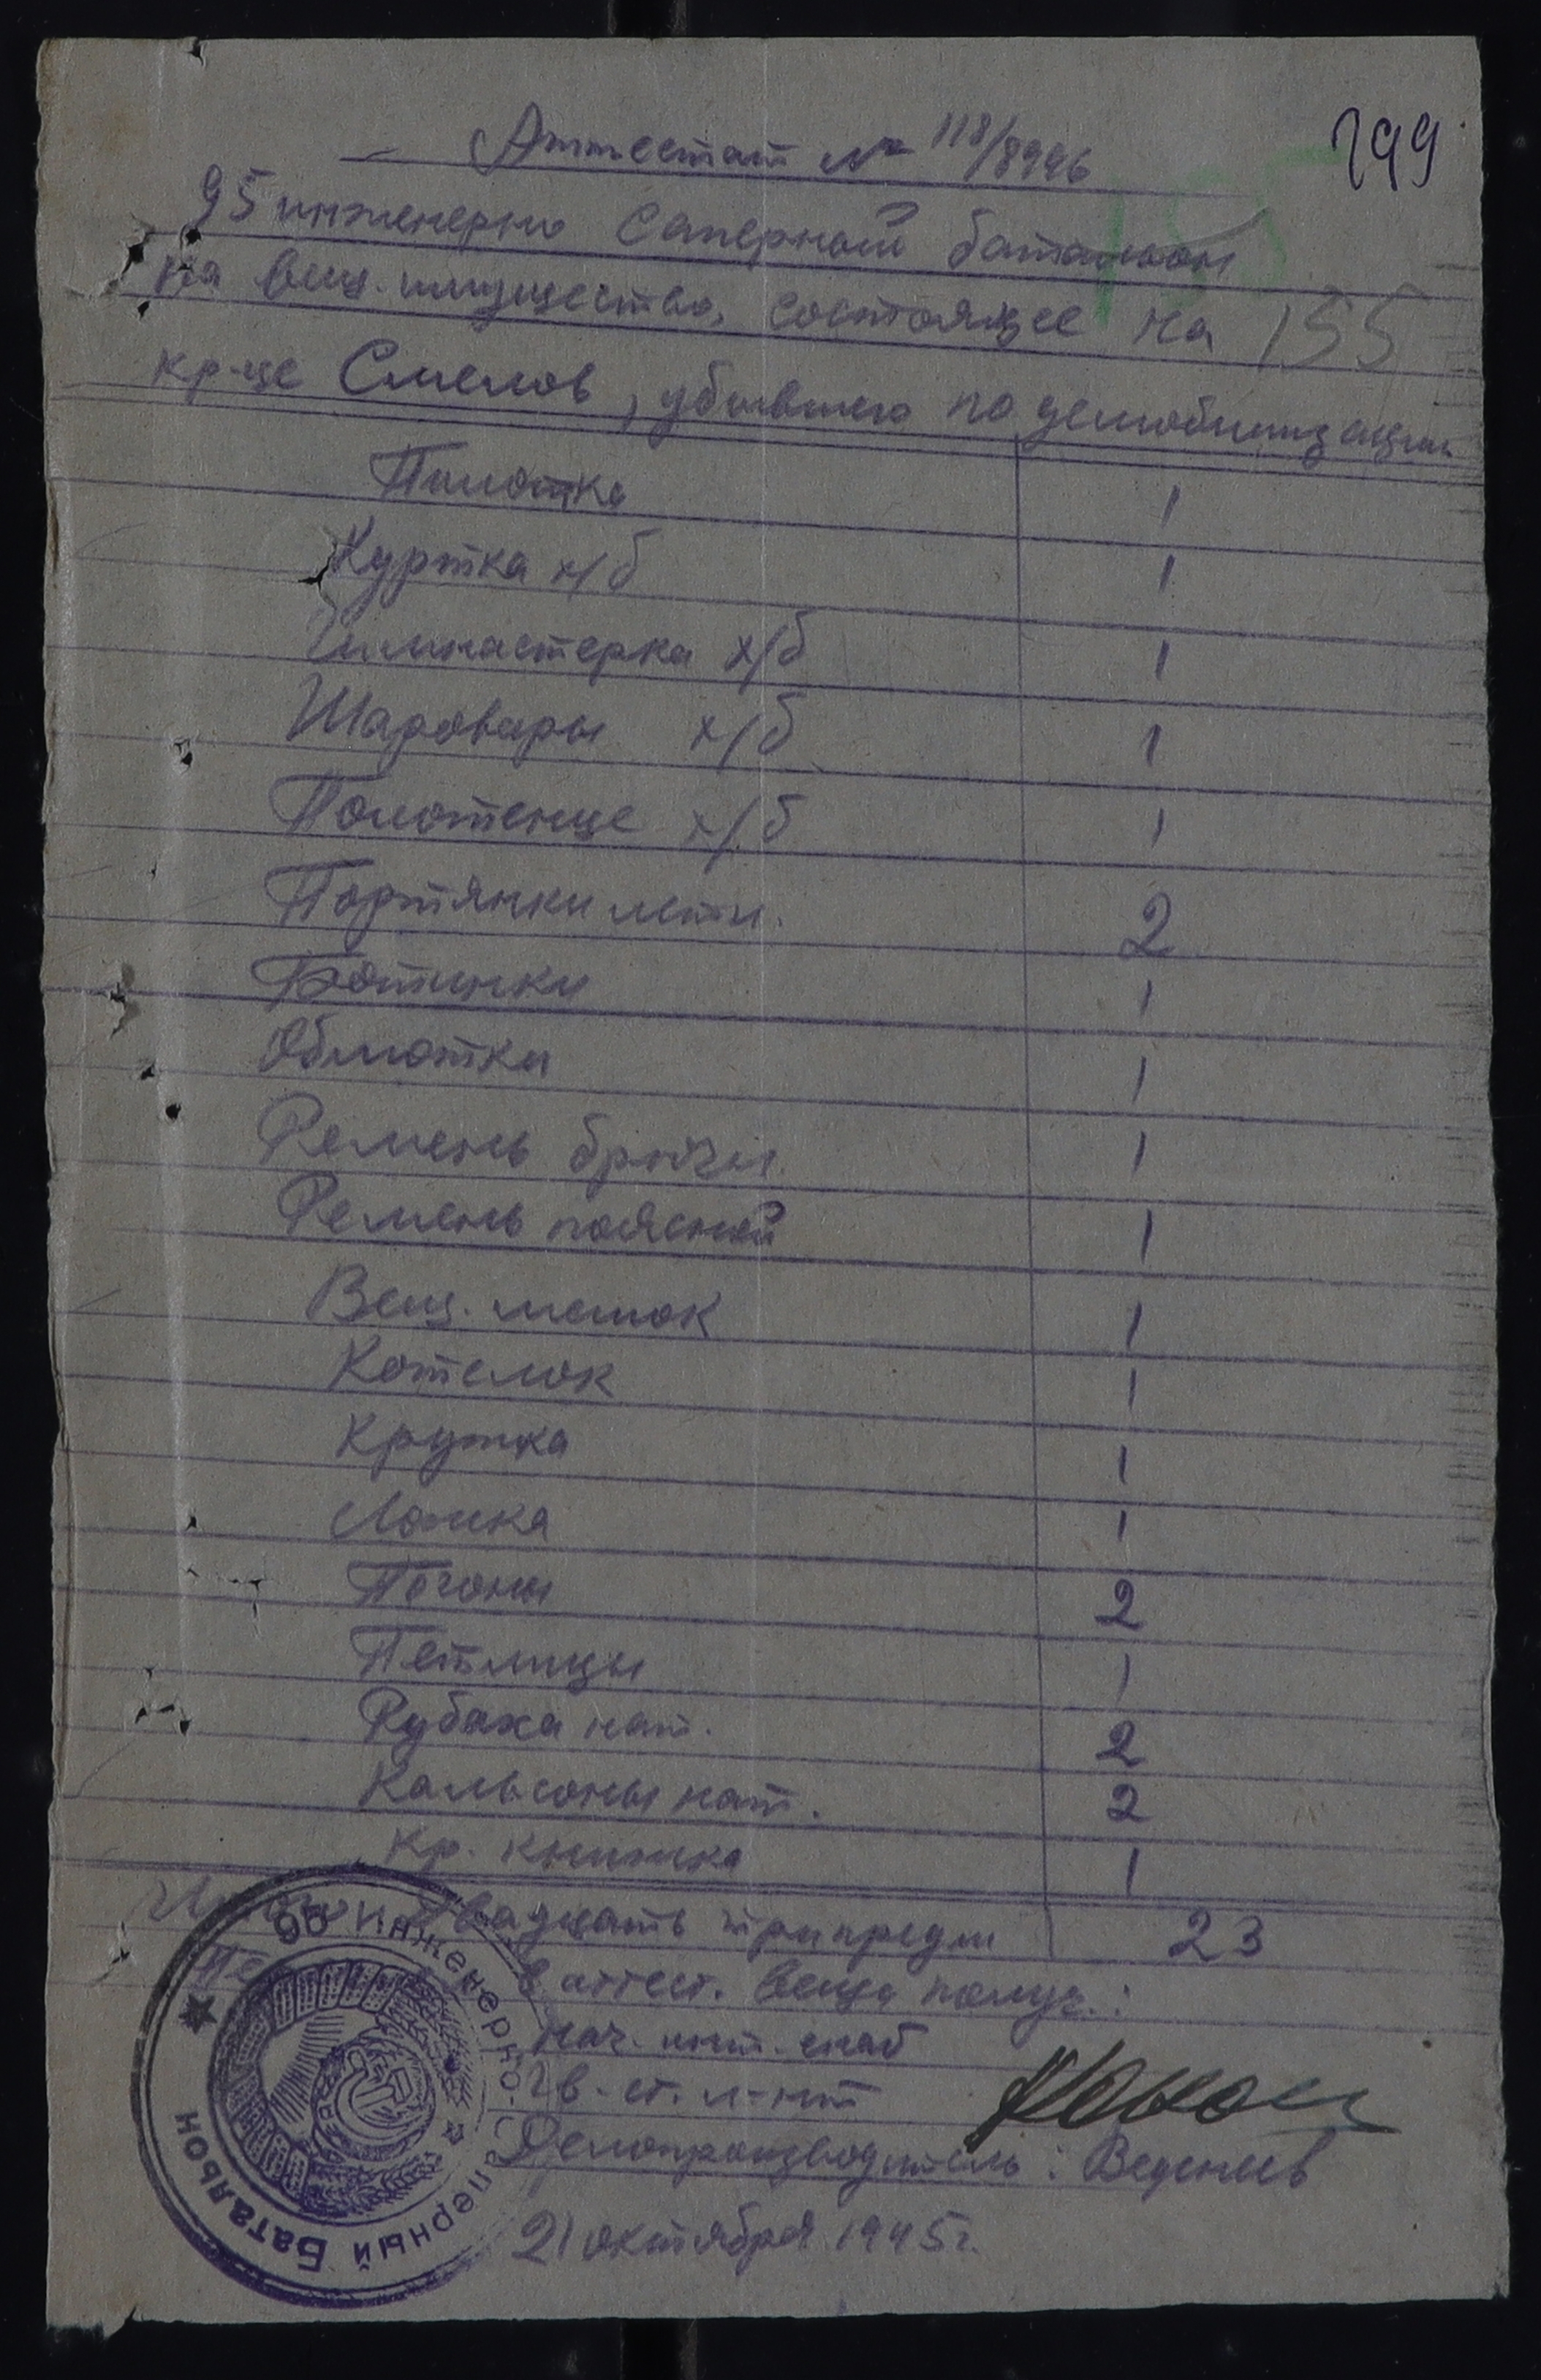 Аттестат № 118/8996
299
95 инженерно Саперный батальон
на вещ. имущество, состоящее на
155
кр-це Смелов, убывшего по демобилизации
Пилотка 1
Куртка х/б 1
Гимнастерка х/б 1
Шаровары х/б 1
Полотенце х/б 1
Портянки летн. 2
Ботинки 1
Обмотки 1
Ремень брючн. 1
Ремень поясной 1
Вещ. мешок 1
Котелок 1
Кружка 1
Ложка 1
Погоны 2
Петлицы 1
Рубаха нат. 2
Кальсоны нат. 2
Кр. книжка 1
Итого: Двадцать три предм 23
в аттест. вещи получ.:
Нач. инт. снаб
Гв. ст. л-нт
Делопроизводитель: Веденеев
21 октября 1945 г.
95 Инженерно-Саперный Батальон